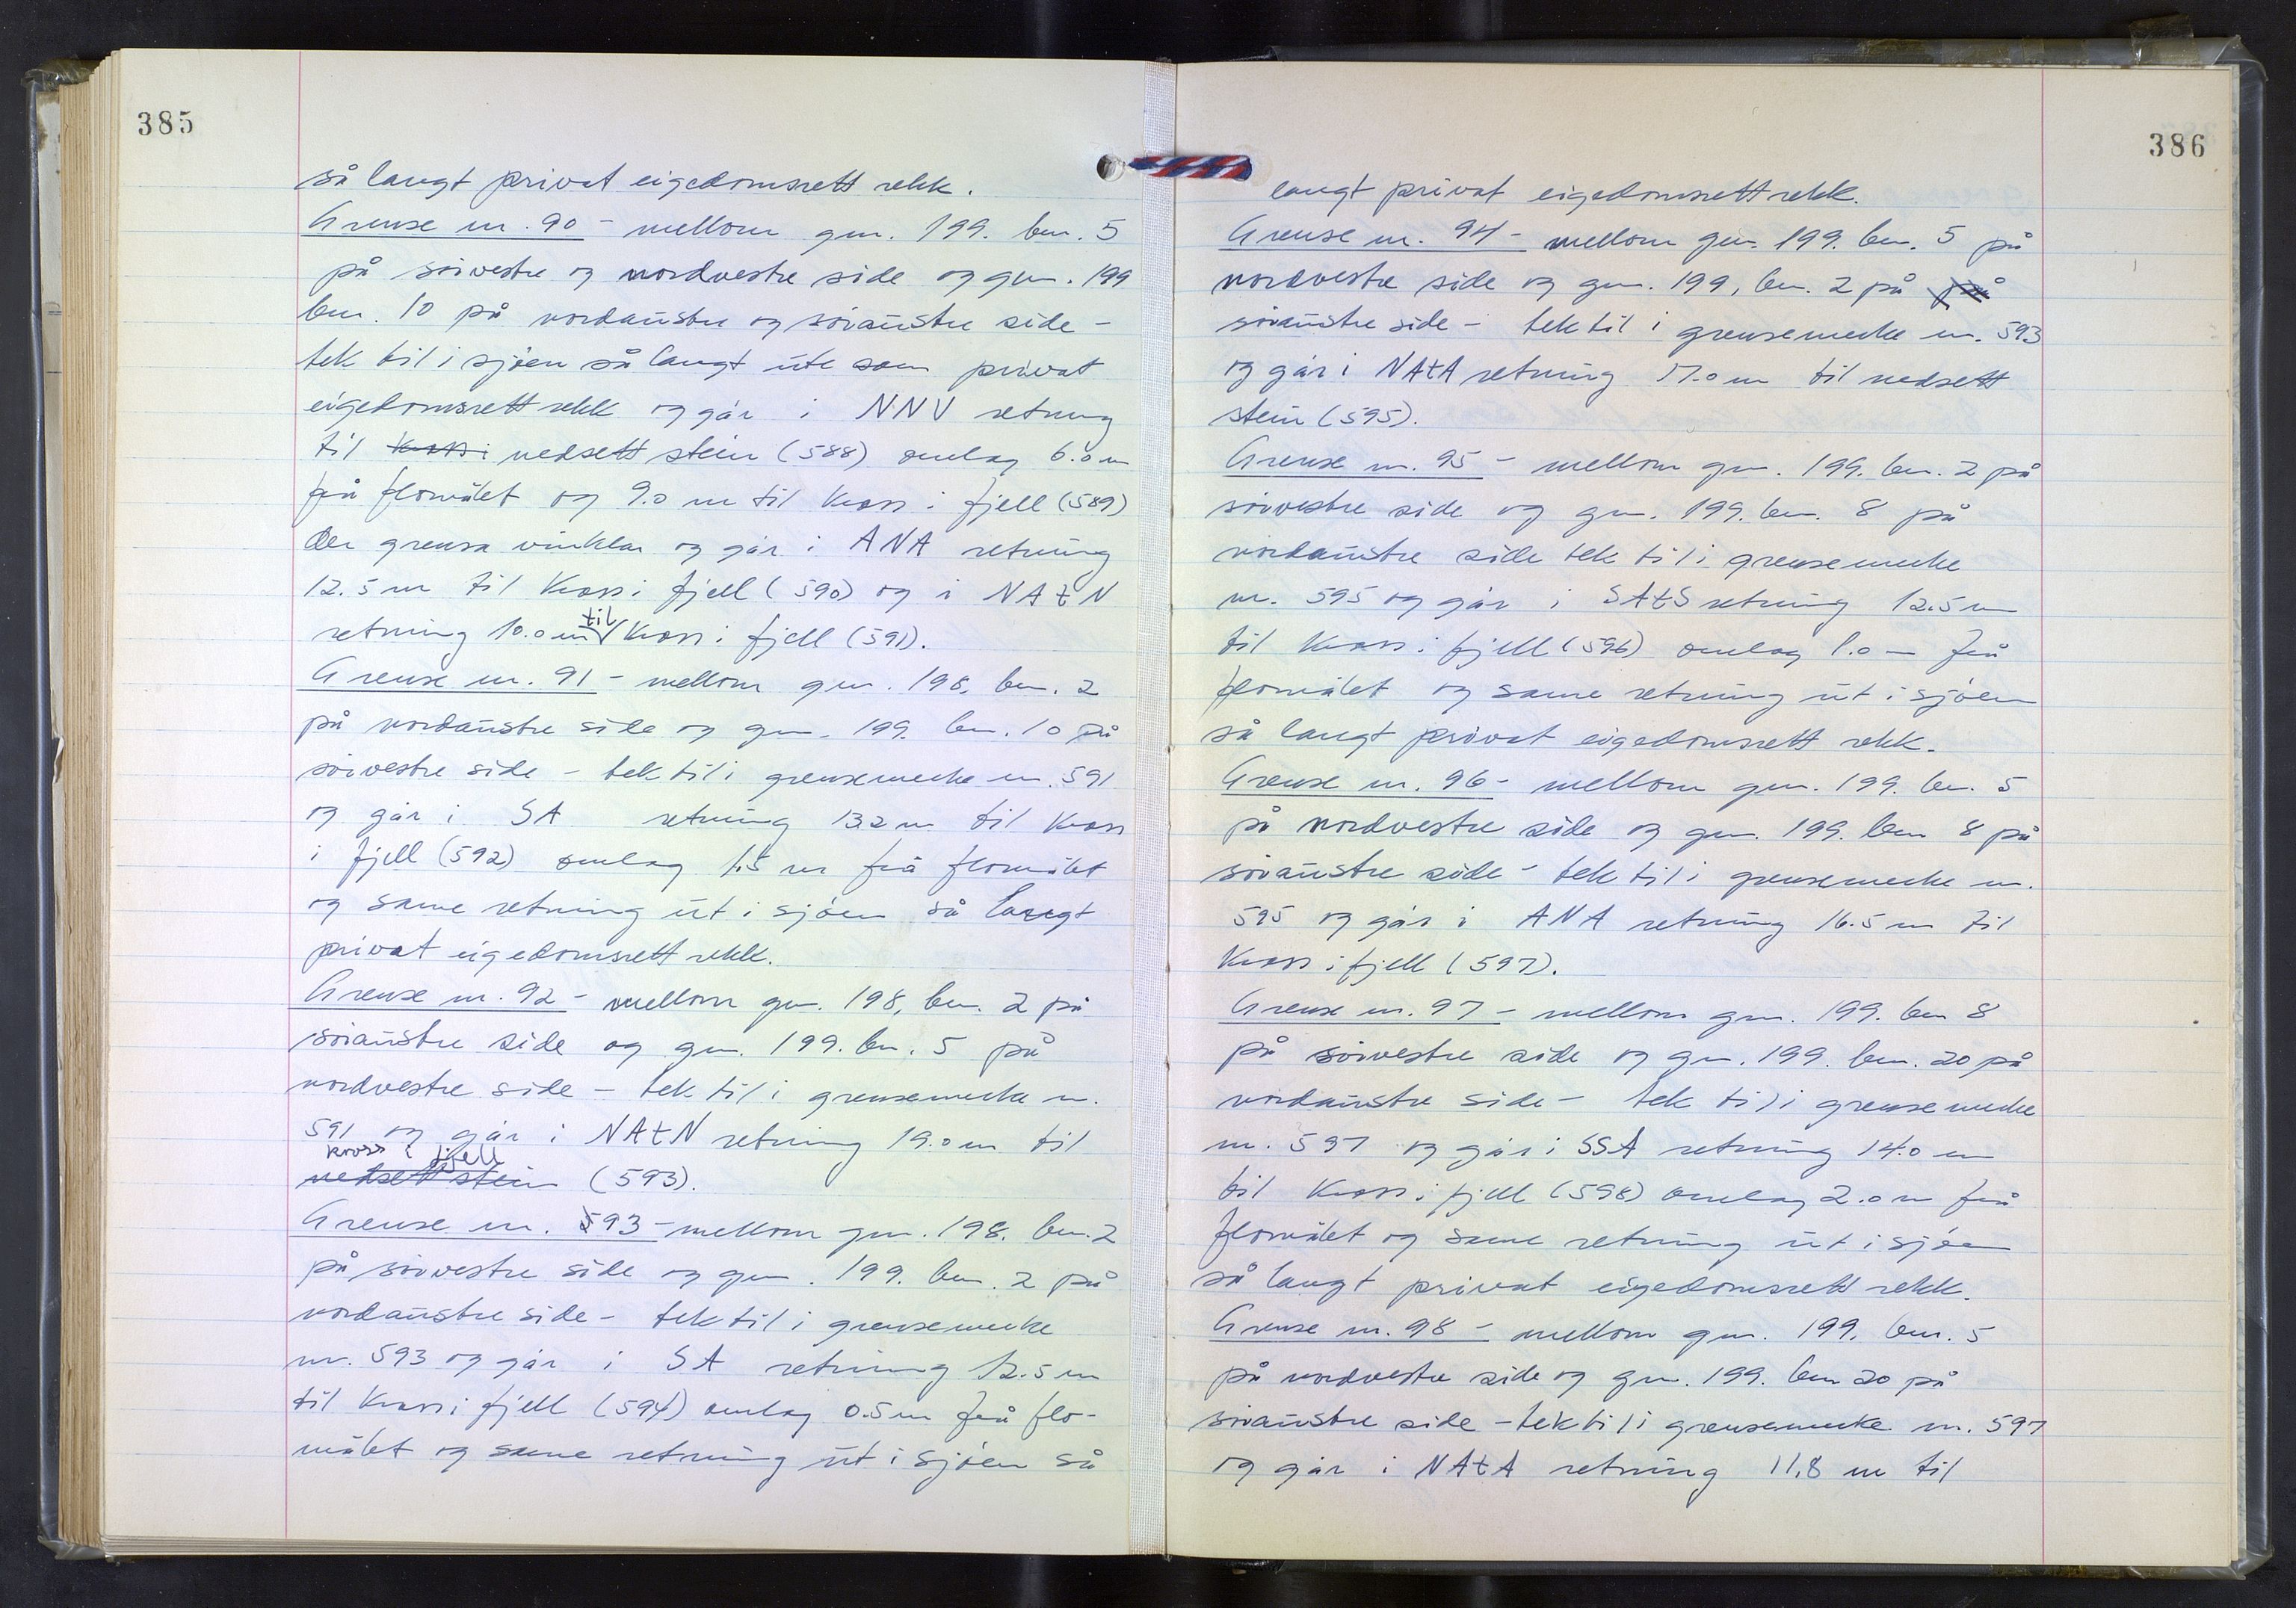 385
så langt privat eigedomsrett rekk.
Grense nr. 90 - mellom gnr. 199. bnr. 5
på sørvestre og nordvestre side og gnr. 199
bnr. 10 på nordaustre og søraustre side -
tek til i sjøen så langt ute som privat
eigedomsrett rekk og går i NNV retning
til kross i nedsett stein (588) omlag 6.0 m
frå flomålet og 9.0 m til kross i fjell (589)
der grensa vinklar og går i ANA retning
12.5 m til kross i fjell (590) og i NAtN
retning 10.0 m til kross i fjell (591).
Grense nr. 91 - mellom gnr. 198. bnr. 2
på nordaustre side og gnr. 199. bnr. 10 på
sørvestre side - tek til i grensemerke nr. 591
og går i SA retning 13.2 m til kross
i fjell (592) omlag 1.5 m frå flomålet
og same retning ut i sjøen så langt
privat eigedomsrett rekk.
Grense nr. 92 - mellom gnr. 198, bnr. 2 på
søraustre side og gnr. 199. bnr. 5 på
nordvestre side - tek til i grensemerke nr.
591 og går i NAtN retning 19.0 m til
kross i fjell
nedsett stein (593).
Grense nr. 593 - mellom gnr. 198. bnr. 2
på sørvestre side og gnr. 199. bnr. 2 på
nordaustre side - tek til i grensemerke
nr. 593 og går i SA retning 12.5 m
til kross i fjell (594) omlag 0.5 m frå flo-
målet og same retning ut i sjøen så
386
langt privat eigedomsrett rekk.
Grense nr. 94 - mellom gnr. 199. bnr. 5 på
nordvestre side og gnr. 199, bnr. 2 på på
søraustre side - tek til i grensemerke nr. 593
og går i NAtA retning 17.0 m til nedsett
stein (595).
Grense nr. 95 - mellom gnr. 199. bnr. 2 på
sørvestre side og gnr. 199. bnr. 8 på
nordaustre side tek til i grensemerke
nr. 595 og går i SAtS retning 12.5 m
til kross i fjell (596) omlag 1.0 m frå
flomålet og same retning ut i sjøen
så langt privat eigedomsrett rekk.
Grense nr. 96 - mellom gnr. 199. bnr. 5
på nordvestre side og gnr. 199. bnr 8 på
søraustre side - tek til i grensemerke nr.
595 og går i ANA retning 16.5 m til
kross i fjell (597).
Grense nr. 97 - mellom gnr. 199. bnr 8
på sørvestre side og gnr. 199. bnr. 20 på
nordaustre side - tek til i grensemerke
nr. 597 og går i SSA retning 14.0 m
til kross i fjell (598) omlag 2.0 m frå
flomålet og same retning ut i sjøen
så langt privat eigedomsrett rekk.
Grense nr. 98 - mellom gnr. 199. bnr. 5
på nordvestre side og gnr. 199. bnr 20 på
søraustre side - tek til i grensemerke nr. 597
og går i NAtA retning 11.8 m til